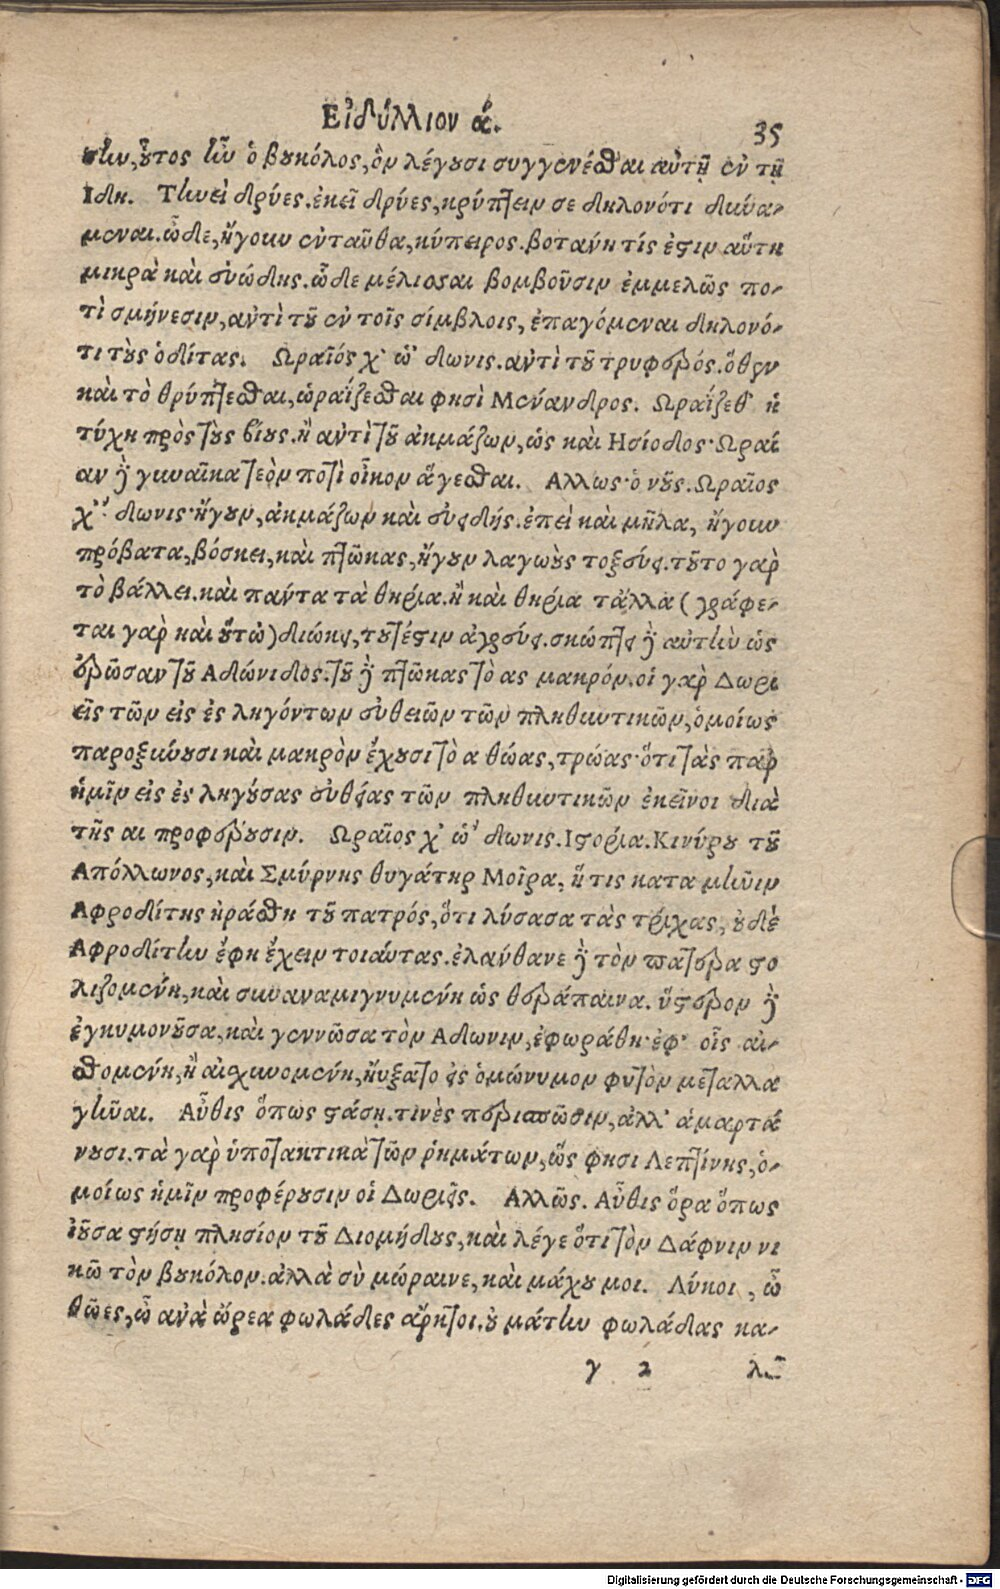 Εἰδύλλιον ά.
35
την, οὗτος ἦν ὁ βουκόλος, ὃν λέγουσι συγγενέσθαι αὐτῇ ἐν τῇ
Ιδη. Τηνεὶ δρύες. ἐκεῖ δρύες, κρύπτειν σε δηλονότι δυνά-
μεναι. ὧδε, ἤγουν ἐνταῦθα, κύπειρος. βοτάνη τίς ἐστιν αὕτη
μικρὰ καὶ εὐώδης. ὧδε μέλισσαι βομβοῦσιν ἐμμελῶς πο-
τὶ σμήνεσιν, αὐτὶ τοῦ ἐν τοῖς σίμβλοις, ἐπαγόμεναι δηλονό-
τι τοὺς ὁδίτας. Ωραῖός χ' ὠ' δωνις. αὐτὶ τοῦ τρυφερός. ὅθεν
καὶ τὸ θρύπτεσθαι, ὡραΐζεσθαι φησὶ Μένανδρος. Ωραΐζεθ' ἡ
τύχη πρὸς τοὺς βίους. ἢ αὐτὶ τοῦ ἀκμάζων, ὡς καὶ Ησίοδος· Ωραί
αν δὲ γυναῖκα τεὸν ποτὶ οἶκον ἄγεσθαι. Αλλως· ὁ νοῦς. Ωραῖος
χ' ὠ' δωνις· ἤγουν, ἀκμάζων καὶ εὐειδής. ἐπεὶ καὶ μῆλα, ἤγουν
πρόβατα, βόσκει, καὶ πτῶκας, ἤγουν λαγωοὺς τοξεύει. τοῦτο γὰρ
τὸ βάλλει. καὶ παντα τὰ θηρία. ἢ καὶ θηρία τἄλλα (γράφε-
ται γὰρ καὶ οὕτω) διώκει, τουτέστιν ἀγρεύει. σκώπτει δὲ αὐτὴν ὡς
ἐρῶσαν τοῦ Αδώνιδος. τοῦ δὲ πτῶκας τὸ ας μακρόν. οἱ γὰρ Δωρι
εῖς τῶν εἰς ἐς ληγόντων εὐθειῶν τῶν πληθυντικῶν, ὁμοίως
παροξύνουσι καὶ μακρὸν ἔχουσι τὸ α θώας, τρώας· ὅτι τὰς παρ
ἡμῖν εἰς ἐς ληγούσας εὐθείας τῶν πληθυντικῶν ἐκεῖνοι διὰ
τῆς αι προφέρουσιν. Ωραῖος χ' ὠ' δωνις. Ιστορία. Κινύρου τοῦ
Απόλλωνος, καὶ Σμύρνης θυγάτηρ Μοῖρα, ἥ τις κατα μῆνιν
Αφροδίτης ἠράσθη τοῦ πατρός, ὅτι λύσασα τὰς τρίχας, οὐδὲ
Αφροδίτην ἔφη ἔχειν τοιαύτας. ἐλάνθανε δὲ τὸν πατέρα στο
λιζομένη, καὶ συναναμιγνυμένη ὡς θεράπαινα. ὕστερον δὲ
ἐγκυμονοῦσα, καὶ γεννῶσα τὸν Αδωνιν, ἐφωράθη· ἐφ' οἷς αἰ-
σθομένη, ἢ αἰσχυνομένη, ηὔξατο εἰς ὁμώνυμον φυτὸν μεταλλα
γῆναι. Αὖθις ὅπως στάσῃ. τινὲς περισπῶσιν, ἀλλ' ἁμαρτά
νουσι. τὰ γὰρ ὑποτακτικὰ τῶν ῥημάτων, ὥς φησι Λεπτίνης, ὁ-
μοίως ἡμῖν προφέρουσιν οἱ Δωριεῖς. Αλλῶς. Αὖθις ὅρα ὅπως
ἰοῦσα στήσῃ πλησίον τοῦ Διομήδους, καὶ λέγε ὅτι τὸν Δάφνιν νι
κῶ τὸν βουκόλον. ἀλλὰ σὺ μώραινε, καὶ μάχου μοι. Λύκοι, ὦ
θῶες, ὦ ἀνὰ ὤρεα φωλάδες ἄρκτοι. οὐ μάτην φωλάδας κα-
γ 2